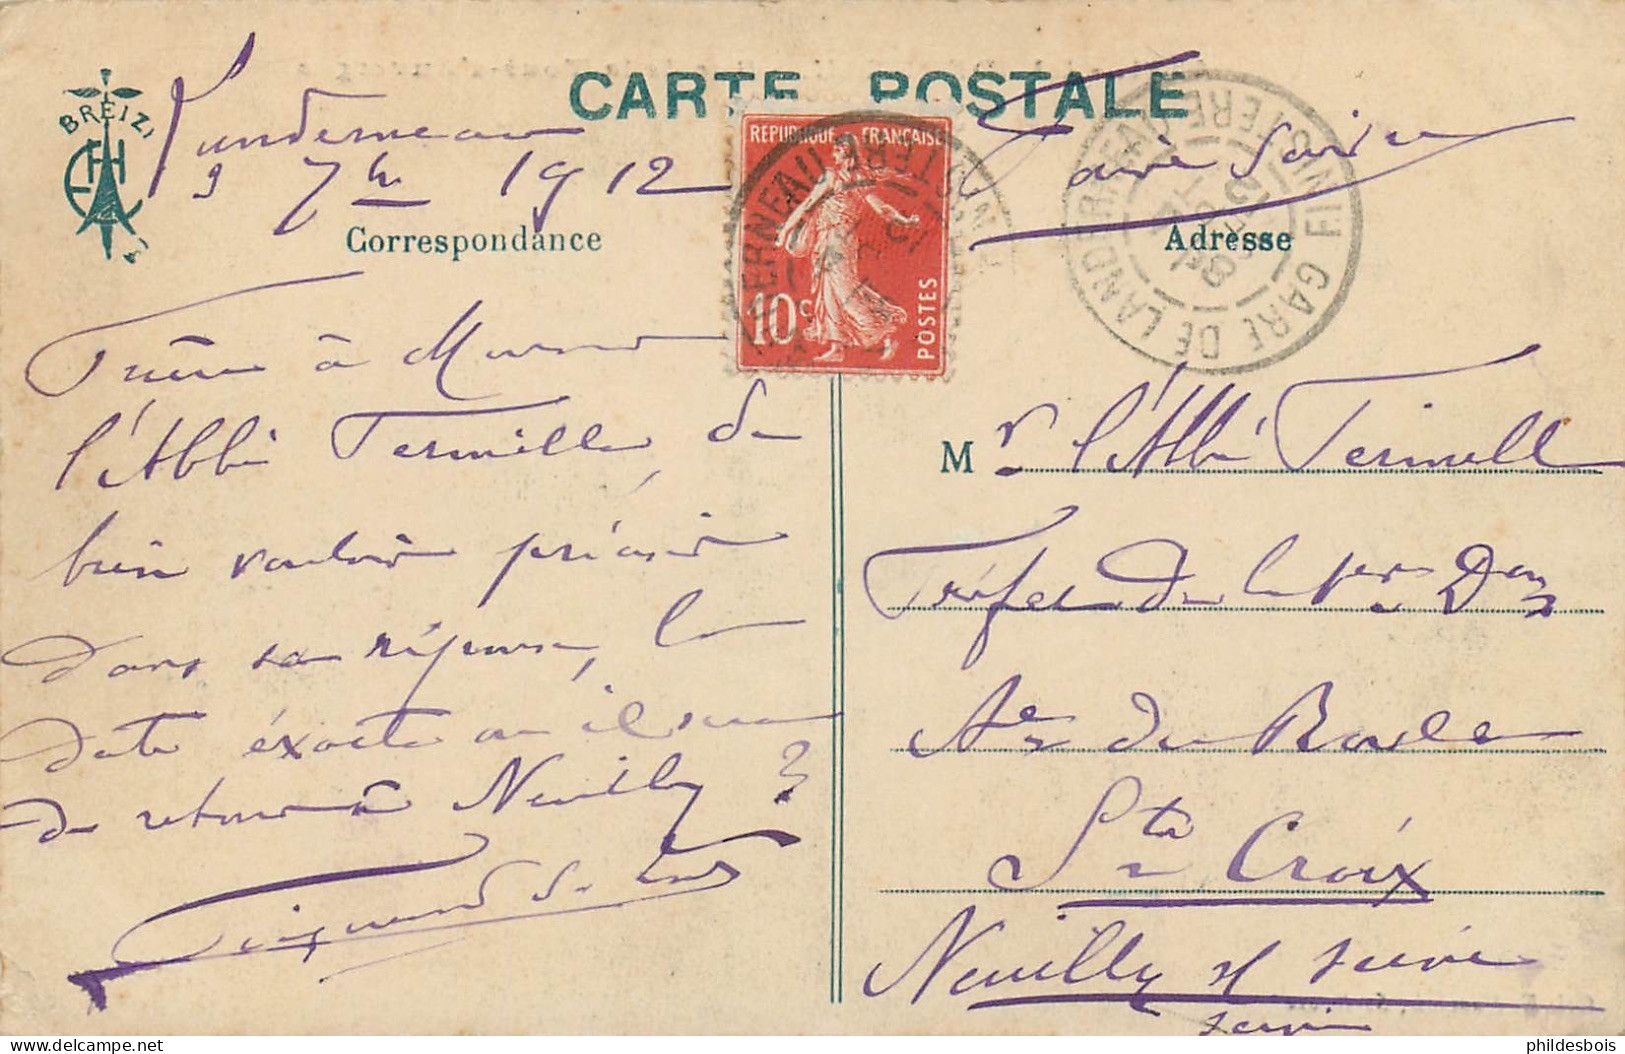 CARTE POSTALE
BREIZ
Landerneau
9 7bre 1912
Faire Suivre
Correspondance
Adresse
REPUBLIQUE FRANÇAISE
10c
POSTES
GARE DE LANDERNEAU FINISTERE
Prière à Monsieur
l'Abbé Termell, de
bien vouloir préciser
dans sa réponse, la
date éxacte où il sera
de retour à Neuilly?
Mr l'Abbé Termell
Préfet de la 1re Don
Ave du Roule
Ste Croix
Neuilly s/ Seine
Seine
phildesbois